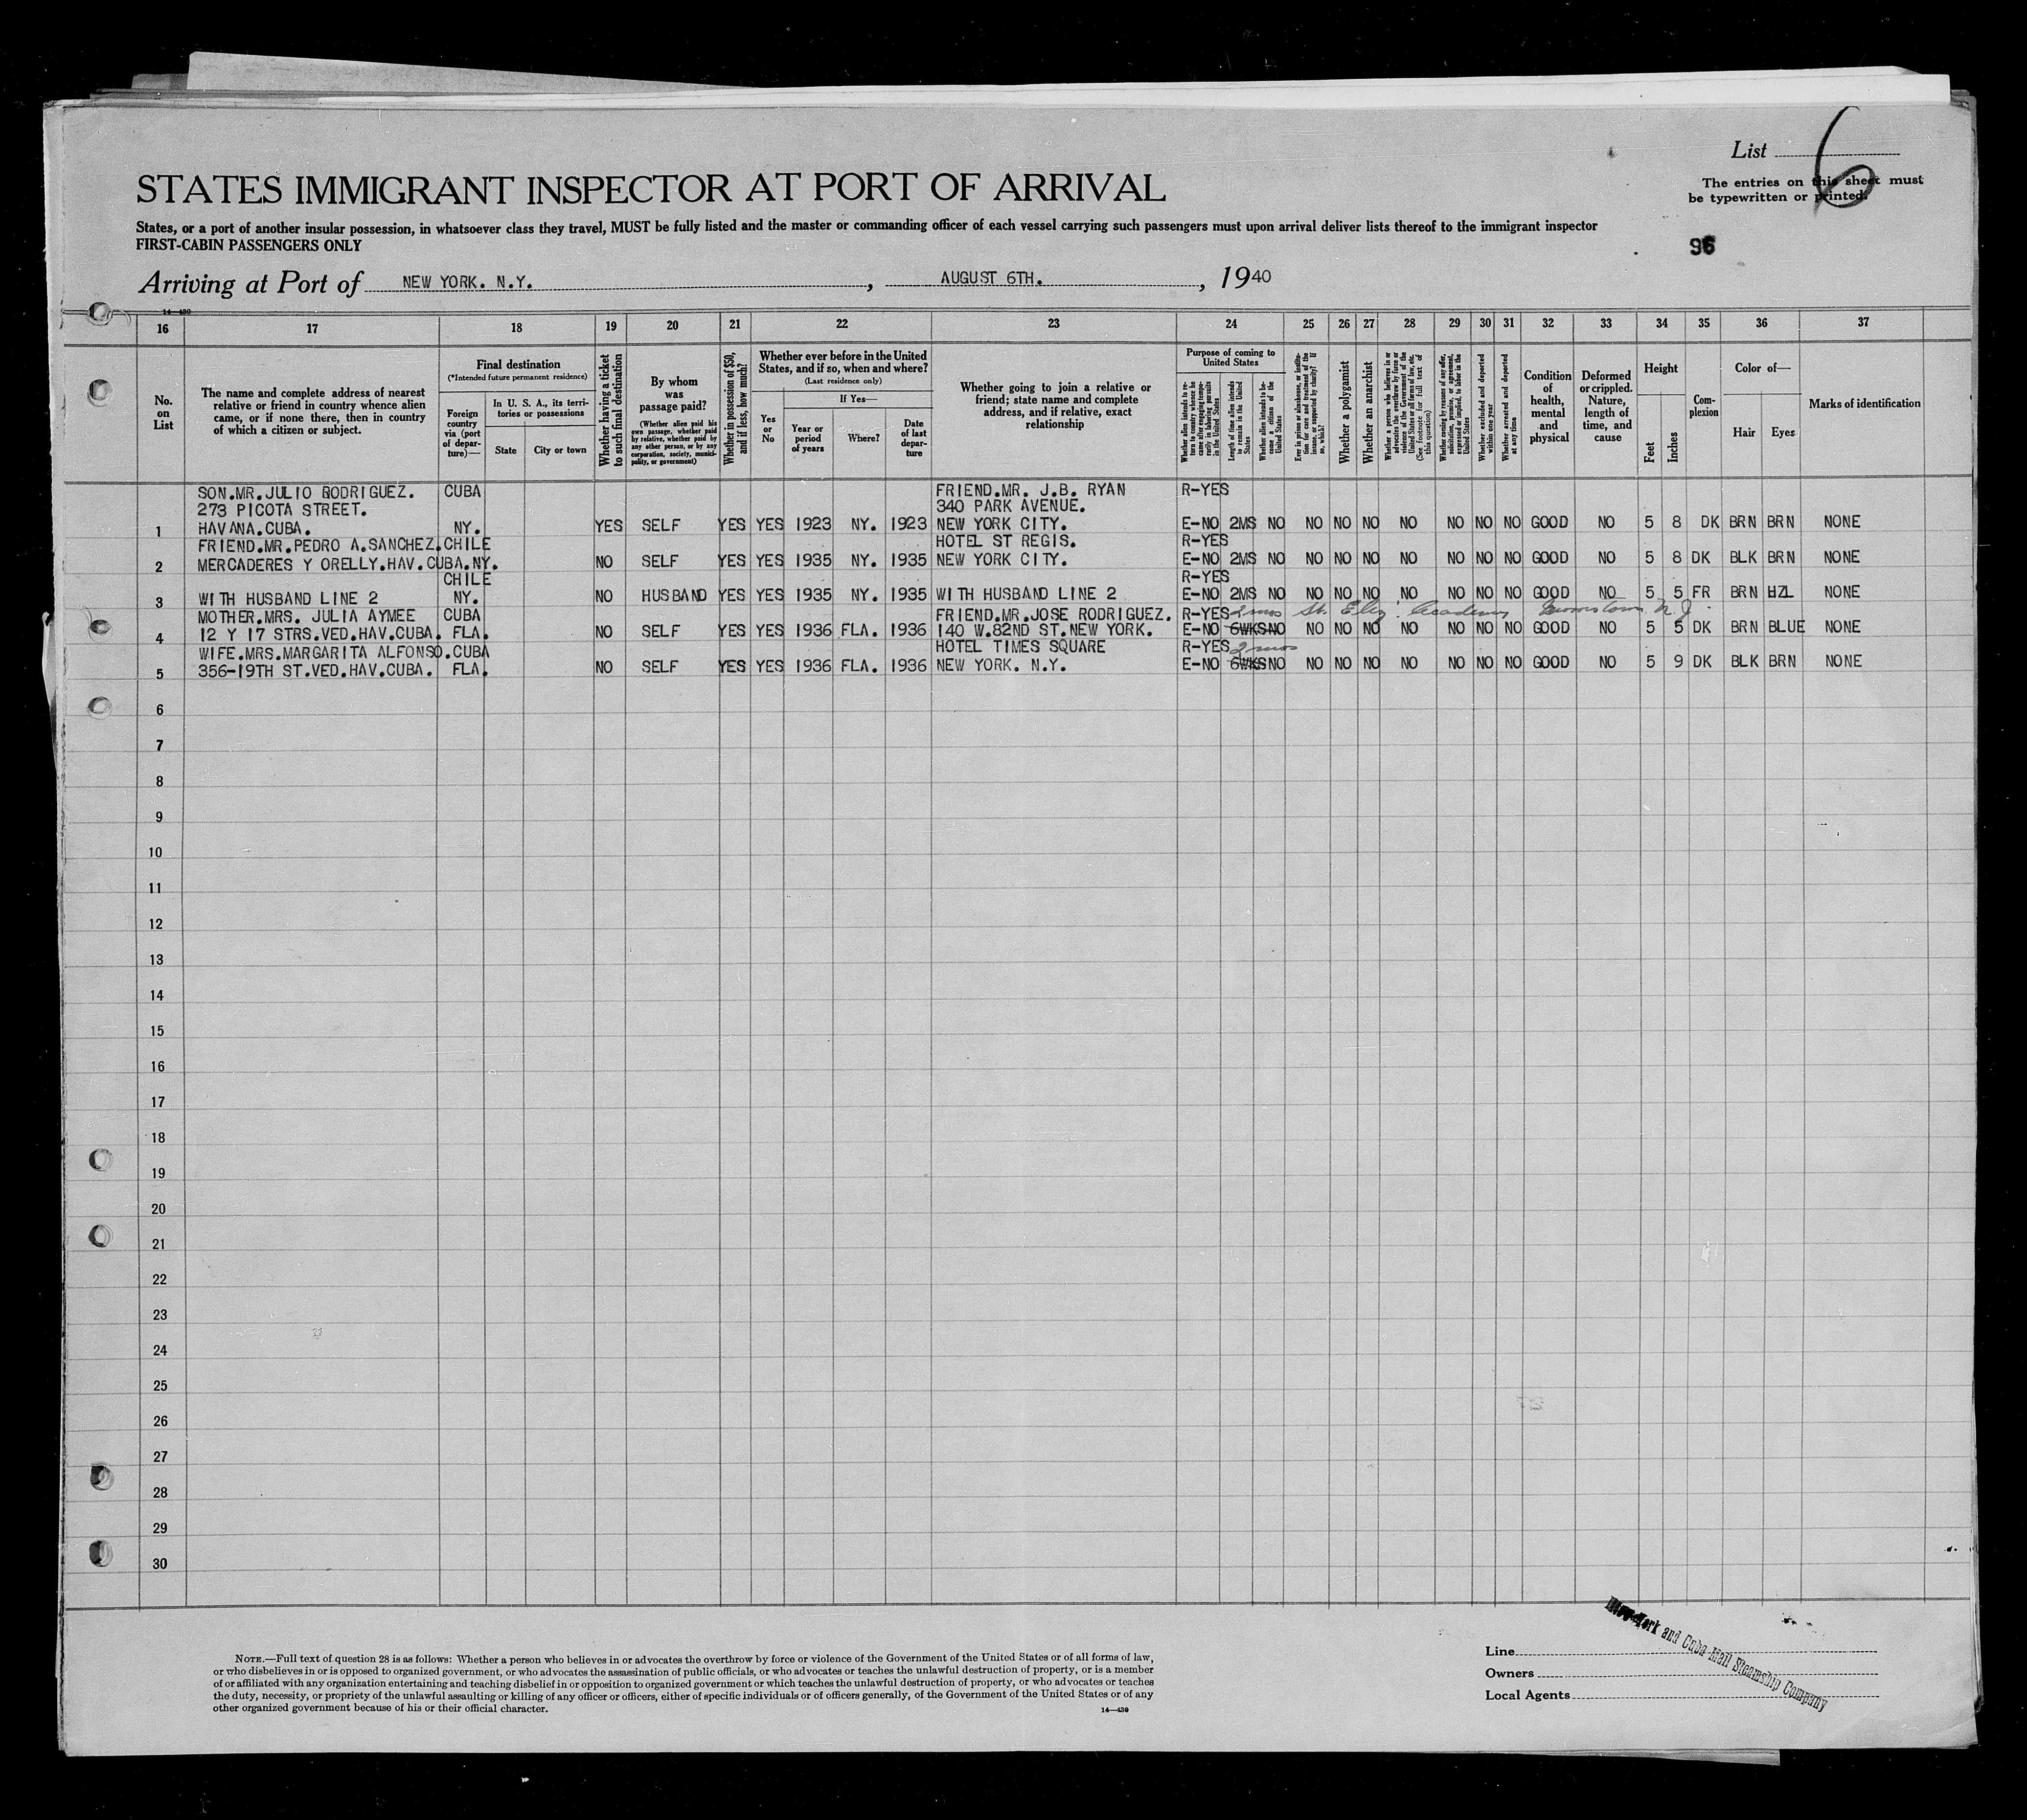 List 6
STATES IMMIGRANT INSPECTOR AT PORT OF ARRIVAL
The entries on this sheet must
be typewritten or printed.
States, or a port of another insular possession, in whatsoever class they travel, MUST be fully listed and the master or commanding officer of each vessel carrying such passengers must upon arrival deliver lists thereof to the immigrant inspector
FIRST-CABIN PASSENGERS ONLY
96
Arriving at Port of NEW YORK. N.Y. , AUGUST 6TH. , 1940
14—430
16 17 18 19 20 21 22 23 24 25 26 27 28 29 30 31 32 33 34 35 36 37
No. on List
The name and complete address of nearest relative or friend in country whence alien came, or if none there, then in country of which a citizen or subject.
Final destination
(*Intended future permanent residence)
Foreign country via (port of departure)—
In U. S. A., its territories or possessions
State
City or town
Whether having a ticket to such final destination
By whom was passage paid?
(Whether alien paid his own passage, whether paid by relative, whether paid by any other person, or by any corporation, society, municipality, or government)
Whether in possession of $50, and if less, how much?
Whether ever before in the United States, and if so, when and where?
(Last residence only)
Yes or No
If Yes—
Year or period of years
Where?
Date of last departure
Whether going to join a relative or friend; state name and complete address, and if relative, exact relationship
Purpose of coming to United States
Whether alien intends to return to country whence he came after engaging temporarily in laboring pursuits in the United States
Length of time alien intends to remain in the United States
Whether alien intends to become a citizen of the United States
Ever in prison or almshouse, or institution for care and treatment of the insane, or supported by charity? If so, which?
Whether a polygamist
Whether an anarchist
Whether a person who believes in or advocates the overthrow by force or violence of the Government of the United States or all forms of law, etc. (See footnote for full text of this question)
Whether coming by reason of any offer, solicitation, promise, or agreement, expressed or implied, to labor in the United States
Whether excluded and deported within one year
Whether arrested and deported at any time
Condition of health, mental and physical
Deformed or crippled. Nature, length of time, and cause
Height
Feet
Inches
Complexion
Color of—
Hair
Eyes
Marks of identification
SON.MR.JULIO RODRIGUEZ. CUBA FRIEND.MR. J.B. RYAN R-YES
273 PICOTA STREET. 340 PARK AVENUE.
1 HAVANA.CUBA. NY. YES SELF YES YES 1923 NY. 1923 NEW YORK CITY. E-NO 2MS NO NO NO NO NO NO NO NO GOOD NO 5 8 DK BRN BRN NONE
FRIEND.MR.PEDRO A.SANCHEZ.CHILE HOTEL ST REGIS. R-YES
2 MERCADERES Y ORELLY.HAV.CUBA.NY. NO SELF YES YES 1935 NY. 1935 NEW YORK CITY. E-NO 2MS NO NO NO NO NO NO NO NO GOOD NO 5 8 DK BLK BRN NONE
CHILE R-YES
3 WITH HUSBAND LINE 2 NY. NO HUSBAND YES YES 1935 NY. 1935 WITH HUSBAND LINE 2 E-NO 2MS NO NO NO NO NO NO NO NO GOOD NO 5 5 FR BRN HZL NONE
MOTHER.MRS. JULIA AYMEE CUBA FRIEND.MR.JOSE RODRIGUEZ. R-YES 2 mos St. Eliz. Academy N.J.
4 12 Y 17 STRS.VED.HAV.CUBA. FLA. NO SELF YES YES 1936 FLA. 1936 140 W.82ND ST.NEW YORK. E-NO 6WKS NO NO NO NO NO NO NO NO GOOD NO 5 5 DK BRN BLUE NONE
WIFE.MRS.MARGARITA ALFONSO.CUBA HOTEL TIMES SQUARE R-YES 2 mos
5 356-19TH ST.VED.HAV.CUBA. FLA. NO SELF YES YES 1936 FLA. 1936 NEW YORK. N.Y. E-NO 6WKS NO NO NO NO NO NO NO NO GOOD NO 5 9 DK BLK BRN NONE
6
7
8
9
10
11
12
13
14
15
16
17
18
19
20
21
22
23
24
25
26
27
28
29
30
NOTE.—Full text of question 28 is as follows: Whether a person who believes in or advocates the overthrow by force or violence of the Government of the United States or of all forms of law,
or who disbelieves in or is opposed to organized government, or who advocates the assassination of public officials, or who advocates or teaches the unlawful destruction of property, or is a member
of or affiliated with any organization entertaining and teaching disbelief in or opposition to organized government or which teaches the unlawful destruction of property, or who advocates or teaches
the duty, necessity, or propriety of the unlawful assaulting or killing of any officer or officers, either of specific individuals or of officers generally, of the Government of the United States or of any
other organized government because of his or their official character.
14—430
Line
Owners
Local Agents
New York and Cuba Mail Steamship Company